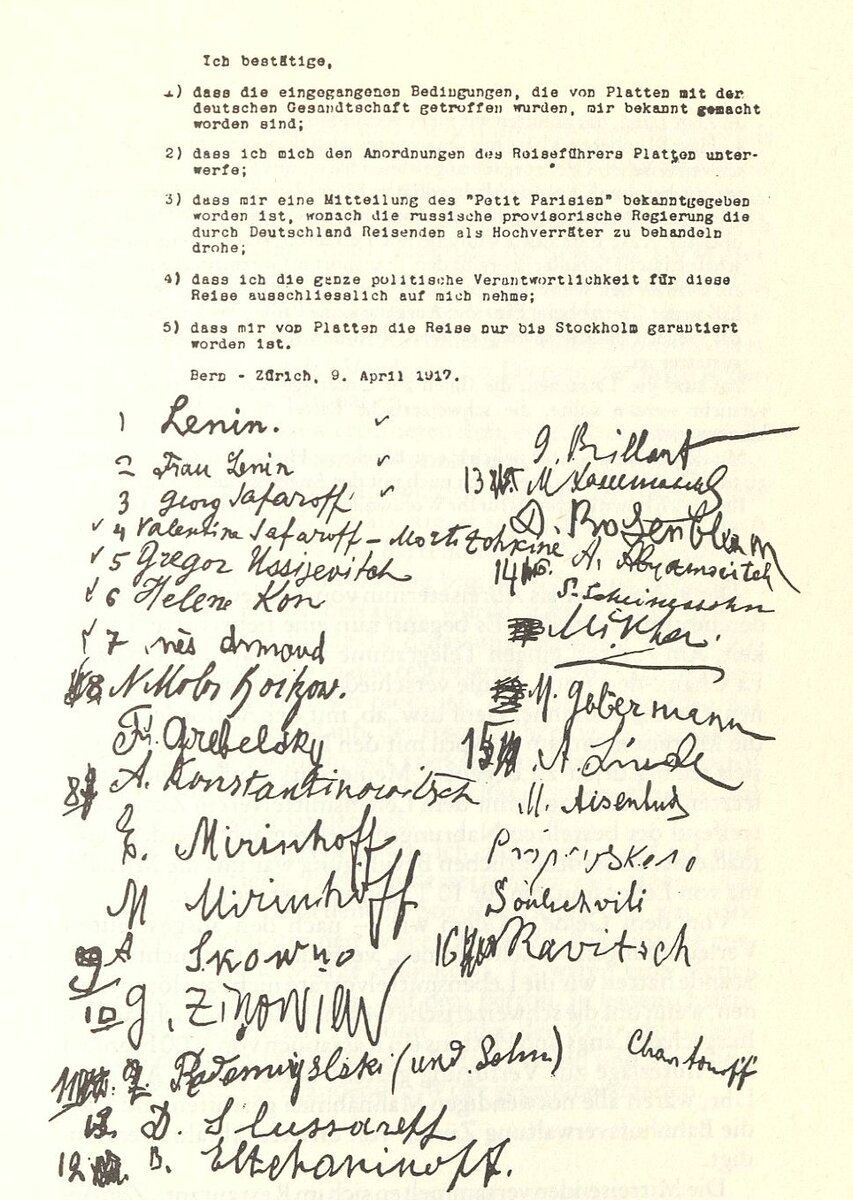 Ich bestätige,
1) dass die eingegangenen Bedingungen, die von Platten mit der
deutschen Gesandtschaft getroffen wurden, mir bekannt gemacht
worden sind;
2) dass ich mich den Anordnungen des Reiseführers Platten unter-
werfe;
3) dass mir eine Mitteilung des "Petit Parisien" bekanntgegeben
worden ist, wonach die russische provisorische Regierung die
durch Deutschland Reisenden als Hochverräter zu behandeln
drohe;
4) dass ich die ganze politische Verantwortlichkeit für diese
Reise ausschliesslich auf mich nehme;
5) dass mir von Platten die Reise nur bis Stockholm garantiert
worden ist.
Bern - Zürich, 9. April 1917.
1 Lenin.
2 Frau Lenin
3 Georg Safaroff
4 Valentina Safaroff - Mortotchkine
5 Gregor Ussijevitch
6 Helene Kon
7 Inès Armand
8 N. Boitzow.
F. Grebelsky
A. Konstantinowitsch
E. Mirinhoff
M Mirinhoff
9 A Skowno
10 G. Zinowiew
11 Radomyslski (und Sohn)
D. Slussareff
12 B. Eltchaninoff.
G. Brillant
13 M
D. Rosenblum
14 A. Abramovitch
S. Scheinessohn
M. Gobermann
15 A. Linde
M. Aisenbud
Souliachvili
16 Ravitsch
Charitonoff